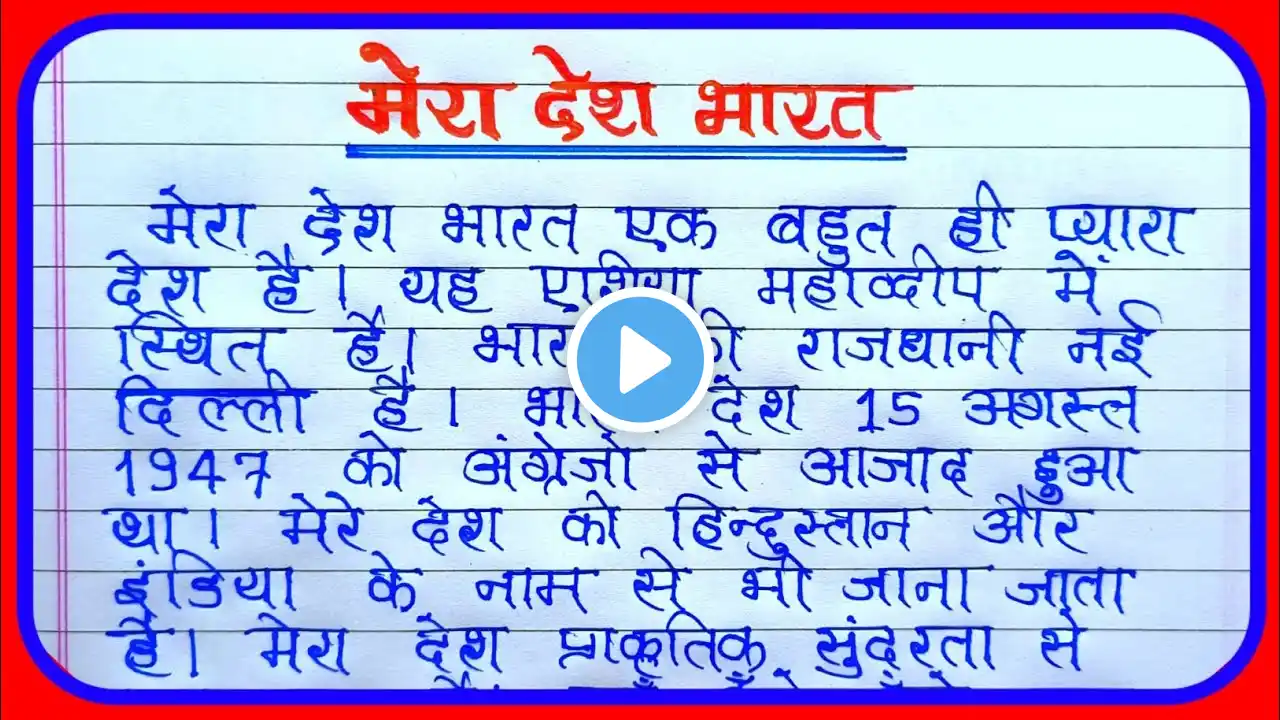 मेरा देश भारत
मेरा देश भारत एक बहुत ही प्यारा
देश है। यह एशिया महाव्दीप में
स्थित है। भारत की राजधानी नई
दिल्ली है। भारत देश 15 अगस्त
1947 को अंग्रेजो से आजाद हुआ
था। मेरे देश को हिन्दुस्तान और
इंडिया के नाम से भी जाना जाता
है। मेरा देश प्राकृतिक सुंदरता से